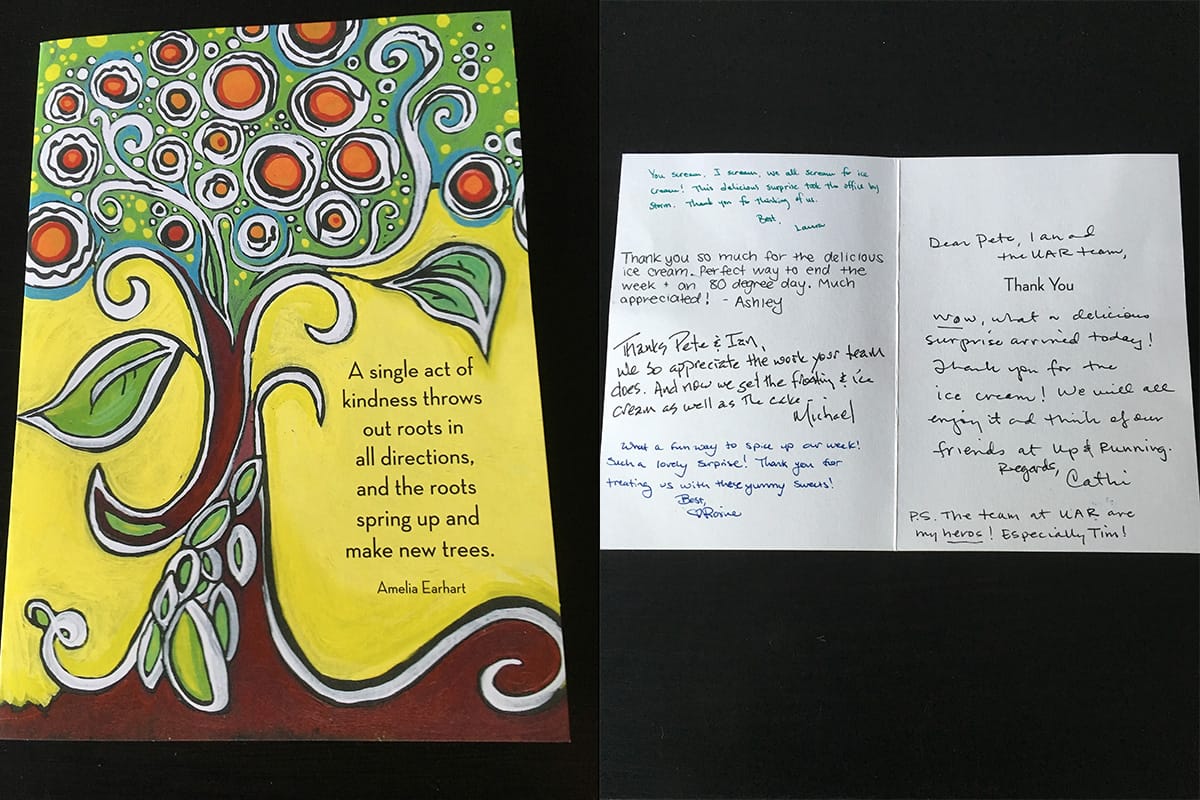 A single act of
kindness throws
out roots in
all directions,
and the roots
spring up and
make new trees.
Amelia Earhart
You scream, I scream, we all scream for ice
cream! This delicious surprise took the office by
storm. Thank you for thinking of us.
Best,
Laura
Thank you so much for the delicious
ice cream. Perfect way to end the
week + an 80 degree day. Much
appreciated! - Ashley
Thanks Pete & Ian,
We so appreciate the work your team
does. And now we get the frosting & ice
cream as well as the cake -
Michael
What a fun way to spice up our week!
Such a lovely surprise! Thank you for
treating us with these yummy sweets!
Best,
Dear Pete, Ian and
the UAR team,
Thank You
Wow, what a delicious
surprise arrived today!
Thank you for the
ice cream! We will all
enjoy it and think of our
friends at Up & Running.
Regards,
Cathi
P.S. The team at UAR are
my heros! Especially Tim!